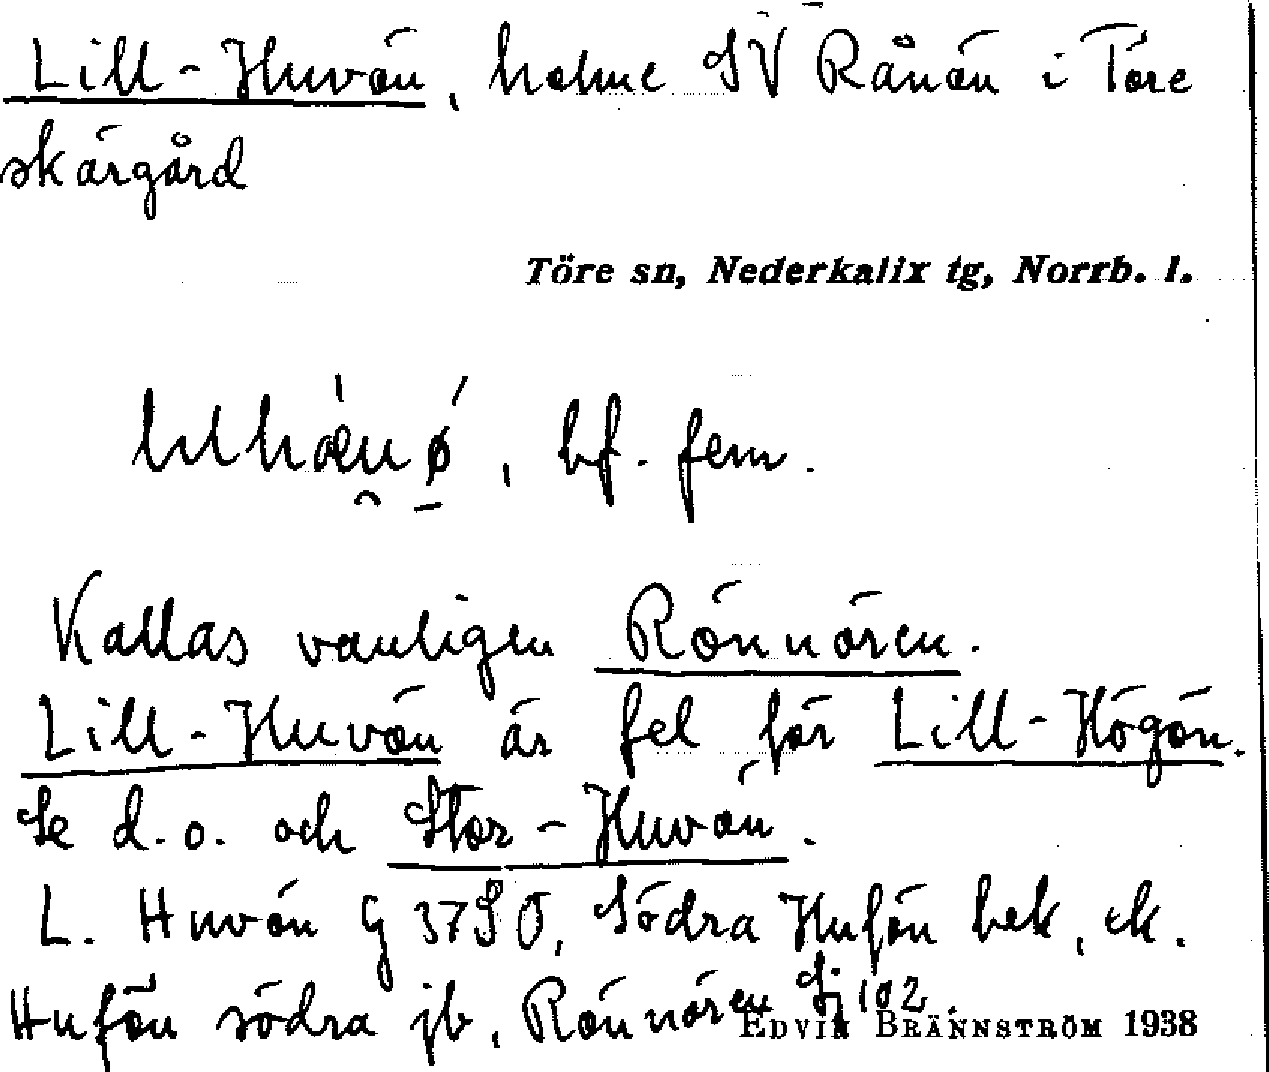 Lill-Huvön, holme SV Rånön i Töre
skärgård
Töre sn, Nederkalix tg, Norrb. l.
bf. fem.
Kallas vanligen Rönnören.
Lill-Huvön är fel för Lill-Högön.
Se d.o. och Stor-Huvön.
L. Huvön G 37SO, Södra Hufön bek, ek.
Hufön södra jb, Rönnören Sj 102.
EDVIN BRÄNNSTRÖM 1938